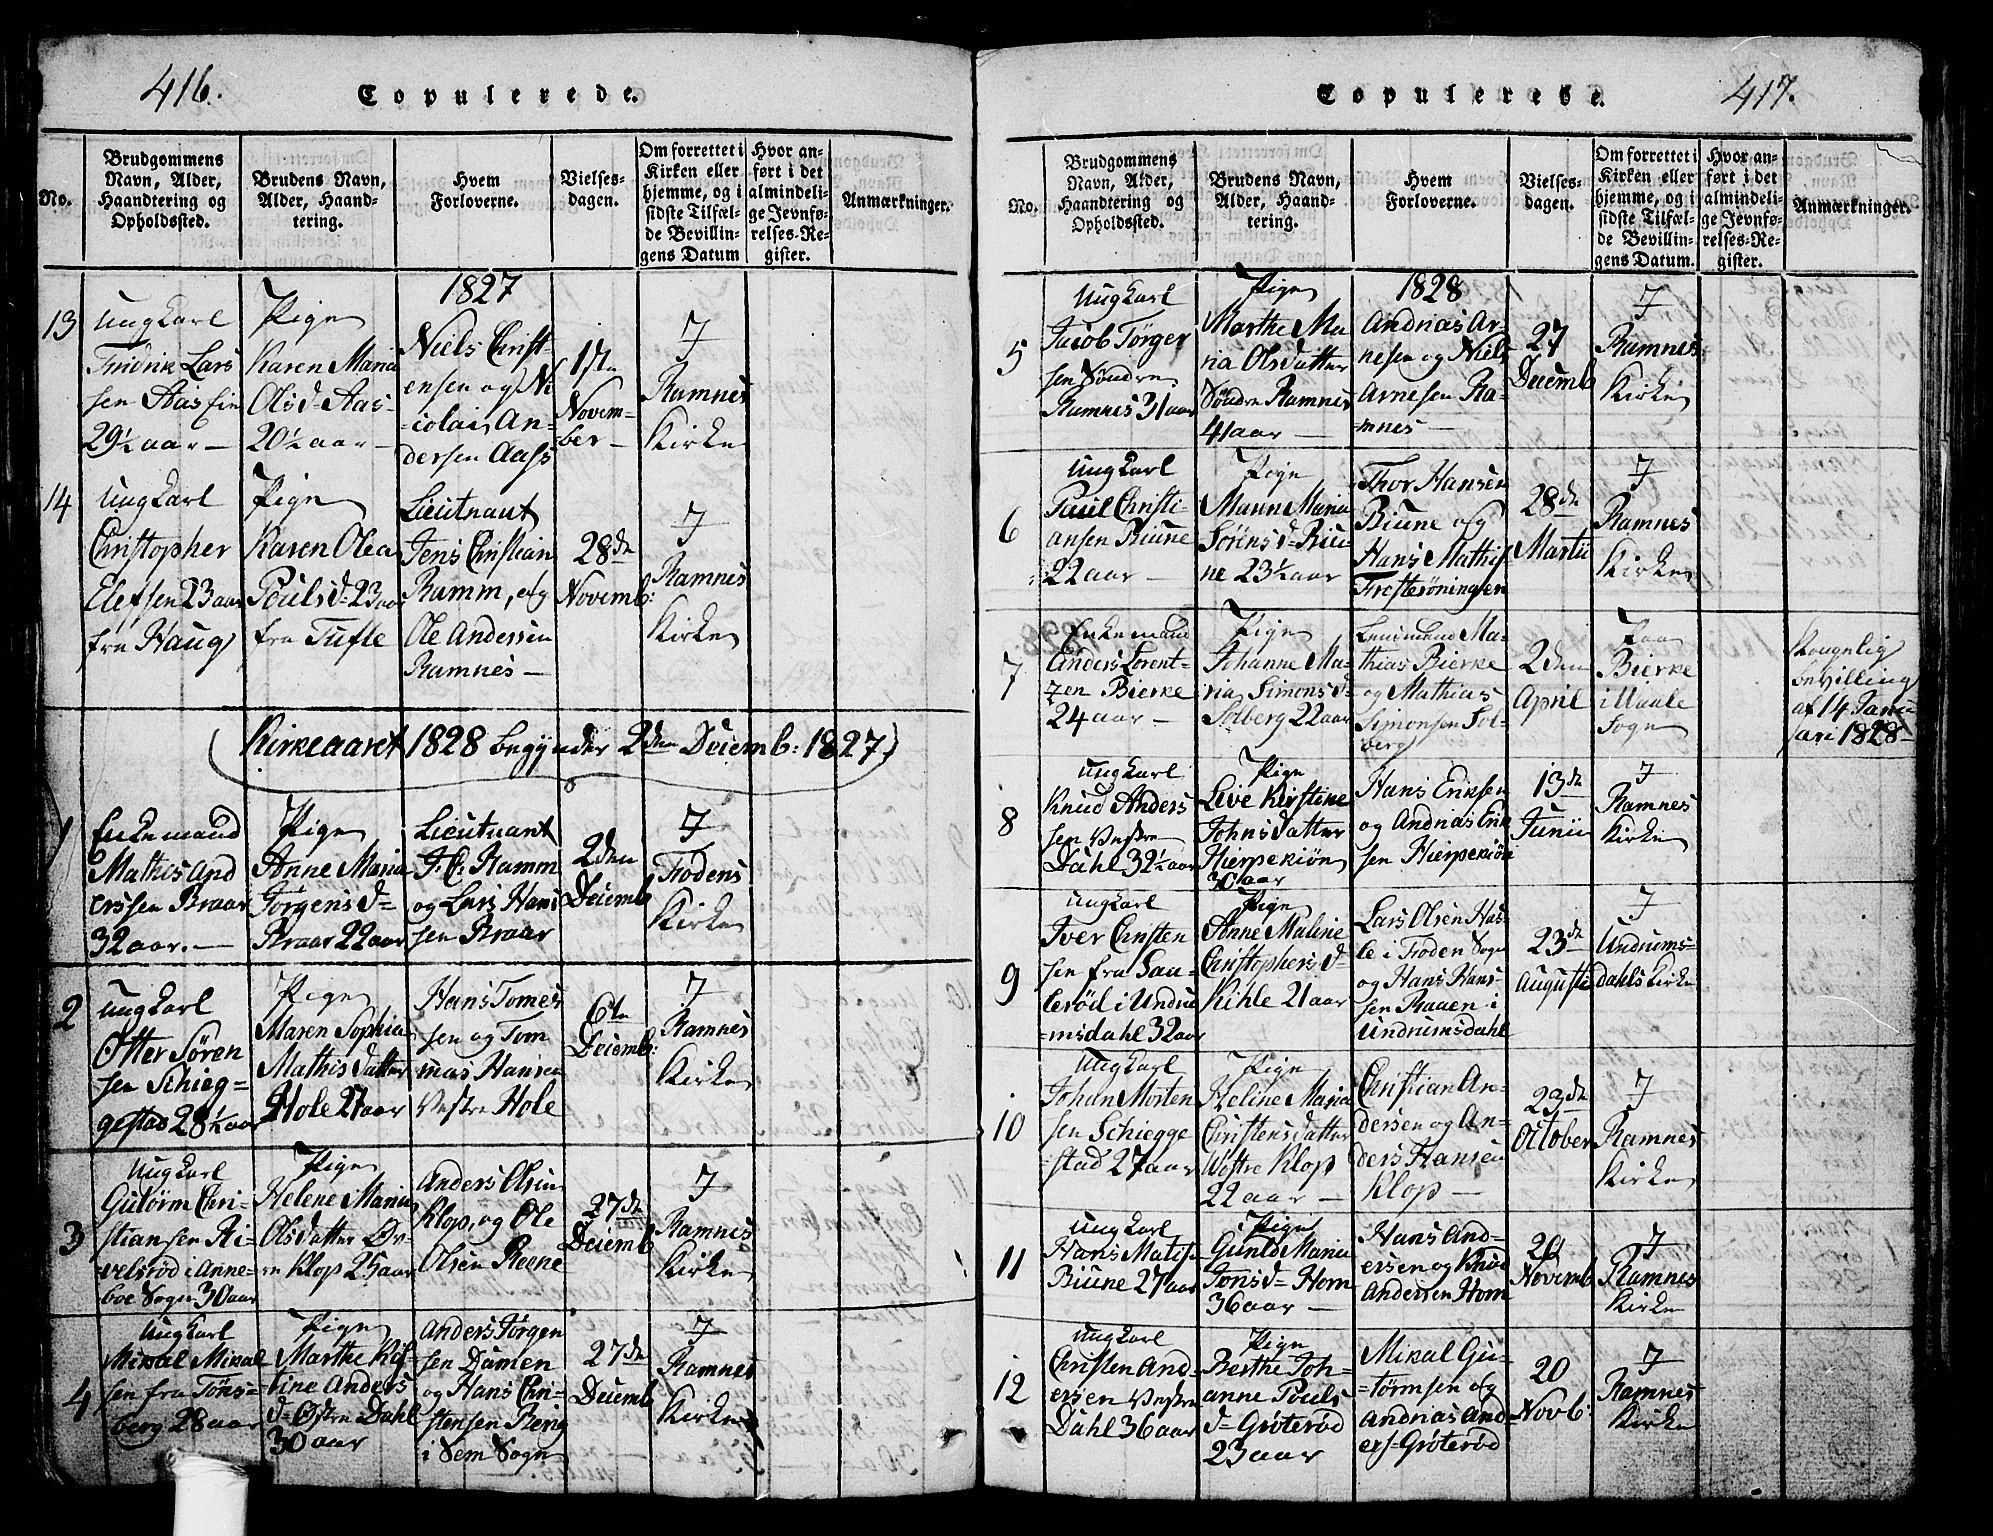 416.
Copulerede.
No.
Brudgommens
Navn, Alder,
Haandtering og
Opholdssted.
Brudens Navn,
Alder, Haand-
tering.
Hvem
Forloverne.
Vielses-
dagen.
Om forrettet i
Kirken eller
hjemme, og i
sidste Tilfæl-
de Bevillin-
gens Datum
Hvor an-
ført i det
almindeli-
ge Jevnfø-
relses-Re-
gister.
Anmærkninger.
1827
13
Ungkarl
Fridrik Lars
sen Aas Eie
29½ aar
Pige
Karen Maria
Olsd. Aas-
20½ aar
Niels Christ-
ensen og Ni
colai An-
dersen Aass
1ste
Novem-
ber
I
Ramnes
Kirke
14
Ungkarl
Christopher
Elefsen 23 aar
fra Haug
Pige
Karen Olea
Poulsd. 23 aar
fra Tufte
Lieutnant
Jens Christian
Ramm, og
Ole Andersen
Ramnes
28de
Novemb:
I
Ramnes
Kirke
Kirkeaaret 1828 begynder 2den Decemb: 1827
1
Enkemand
Mathis And
erssen Braar
32 aar.
Pige
Anne Maria
Jørgensd.
Braar 22 aar
Lieutnant
J. C. Ramm
og Lars Hans
sen Braar
2den
Decemb
I
Fodens
Kirke
2
Ungkarl
Otter Sören
sen Schieg-
gestad 28½ aar
Pige
Maren Sophia
Mathisdatter
Hole 27 aar
Hans Tomes
sen og Tom
mas Hansen
Vestre Hole
6te
Decemb:
I
Ramnes
Kirke
3
Ungkarl
Gutorm Chri-
stiansen Ri-
velsrød i Anne-
boe Sogn 30 aar
Pige
Helene Maria
Olsdatter Øv-
re Klop 25 aar
Anders Olsen
Klop, og Ole
Olsen Reene
27de
Decemb
I
Ramnes
Kirke
4
Ungkarl
Mikal Mikal
sen fra Tøns-
berg 28 aar
Pige
Marthe Kis-
tine Anders
d. Østre Dahl
30 aar
Anders Jørgen
sen Damen
og Hans Chri-
stensen Berg
i Sem Sogn
27de
Decemb
I
Ramnes
Kirke
417.
Copulerede.
No.
Brudgommens
Navn, Alder,
Haandtering og
Opholdssted.
Brudens Navn,
Alder, Haand-
tering.
Hvem
Forloverne.
Vielses-
dagen.
Om forrettet i
Kirken eller
hjemme, og i
sidste Tilfæl-
de Bevillin-
gens Datum.
Hvor an-
ført i det
almindeli-
ge Jevnfø-
relses-Re-
gister.
Anmærkninger.
1828
5
Ungkarl
Jacob Törger
sen Søndre
Ramnes 31 aar
Pige
Marthe Ma
ria Olsdatter
Söndre Ramnes
41 aar
Andrias Ar-
nesen og Niels
Arnesen Ra-
mnes
27
Decemb
I
Ramnes
Kirke
6
Ungkarl
Paul Christi-
ansen Biune
22 aar
Pige
Maren Maria
Sørensd. Biu-
ne 23½ aar
Thor Hansen
Biune og
Hans Mathis
28de
Martii
I
Ramnes
Kirke
7
Enkemand
Anders Lorent-
zen Bierke
24 aar
Pige
Johanne Ma-
ria Simonsd.
Solberg 22 aar
Lensmand Ma-
thias Bierke
og Mathias
Simonsen Sol-
berg
2den
April
Paa
Bierke
i Vaale
Sogn
Kongelig
bevilling
af 14 Janu
ari 1828
8
Ungkarl
Knud Anders
sen Vestre
Dahl 32½ aar
Pige
Live Kirstine
Johnsdatter
Hierpekiøn
30 aar
Hans Eriksen
og Andrias Erik
sen Hierpekiøn
13de
Junii
I
Ramnes
Kirke
9
Ungkarl
Iver Christen
sen fra Sau-
lerød i Undru
msdahl 32 aar
Pige
Anne Maline
Christophersd.
Kihle 21 aar
Lars Olsen Has
le i Foden Sogn
og Hans Hans-
sen Raaen i
Undrumsdahl
23de
Augusti
I
Undrums-
dahls Kirke
10
Ungkarl
Johan Morten
sen Schiegge
stad 27 aar
Pige
Heline Maria
Christensdatter
Wøstre Klop
22 aar
Christian An-
dersen og An-
ders Hansen
Klop
23de
October
I
Ramnes
Kirke
11
Ungkarl
Hans Matis.
Biune 27 aar
Pige
Guneld Maria
Jonsd. Horn
36 aar
Hans And-
ersen og Knud
Andersen Horn
20
Novemb
I
Ramnes
Kirke
12
Ungkarl
Christen And-
ersen Vestre
Dahl 36 aar
Pige
Berthe Joh-
anne Pouls
d. Grøterød
23 aar
Mikal Gu-
tormsen og
Andrias And-
ers. Grøterød
20
Novb:
I
Ramnes
Kirke